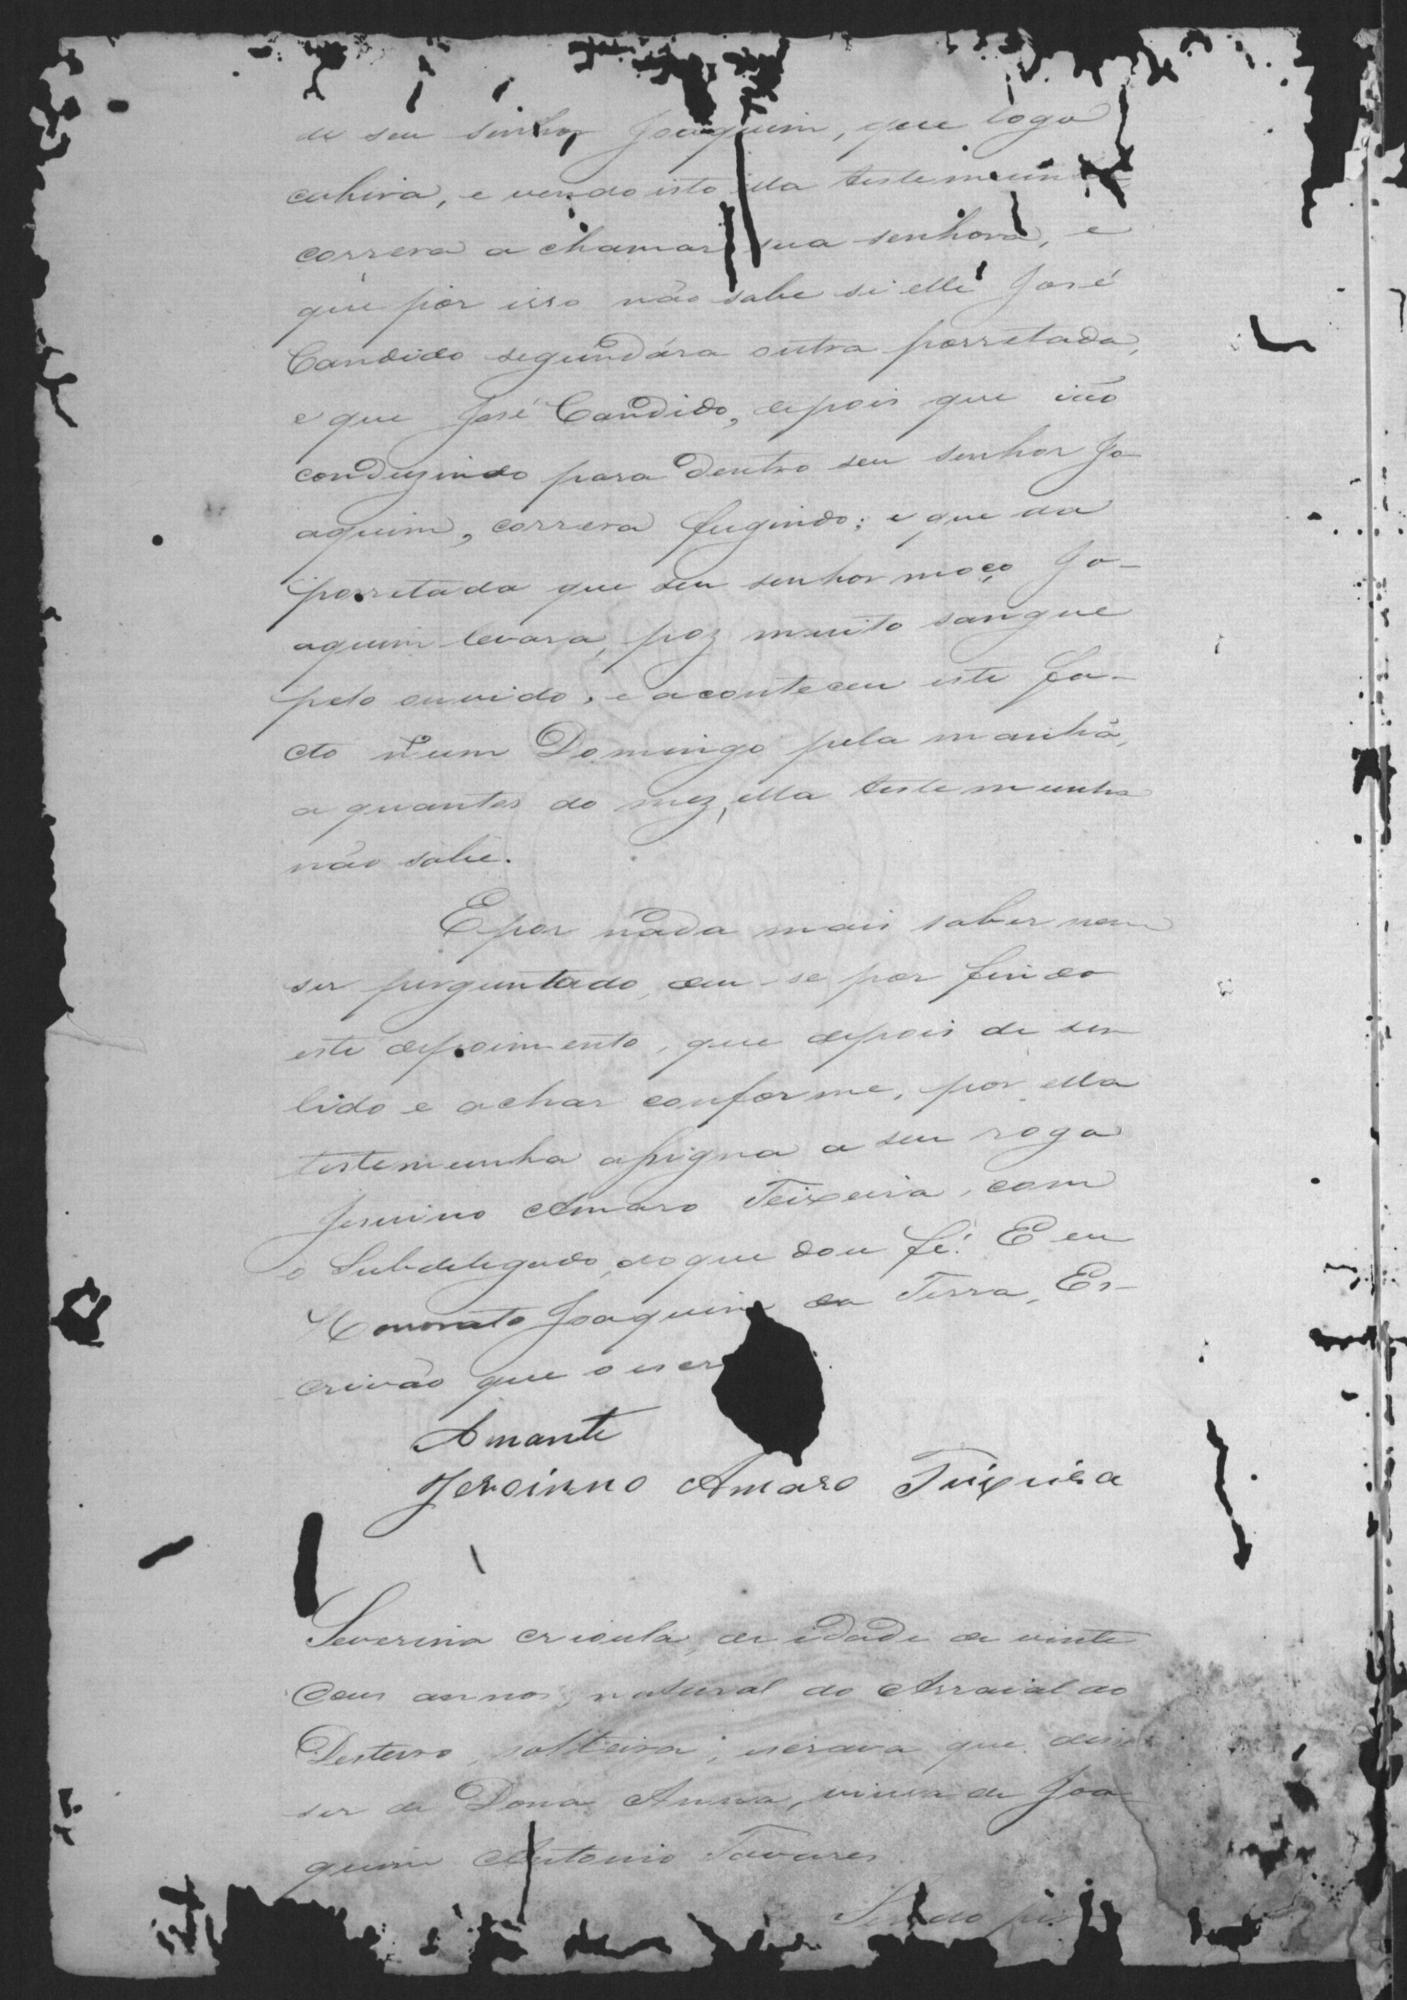 de seu senhor Joaquim, que logo
cahira, e vendo isto ella testemunha
correra a chamar sua senhora, e
que por isso não sabe si elle José
Candido segundára outra porretada,
e que José Candido, depois que ião
conduzindo para dentro seu senhor Jo-
aquim, correra fugindo; e que da
porretada que seu senhor moço Jo-
aquim levara, poz muito sangue
pelo ouvido, e aconteceu este fa-
cto n'um Domingo pela manhã,
a quantos do mez, ella testemunha
não sabe.
E por nada mais saber nem
ser perguntado, deu-se por findo
este depoimento, que depois de ser
lido e achar conforme, por ella
testemunha assigna a seu rogo
Amaro Teixeira, com
o Subdelegado, do que dou fé. E eu
Honorato Joaquim da Terra, Es-
crivão que o escr
Amante
Amaro Teixeira
Severina crioula, de idade de vinte
dous annos, natural do Arraial do
Desterro, solteira, escrava que disse
ser de Dona Anna, viuva de Joa
quim Antonio Tavares.
Sendo